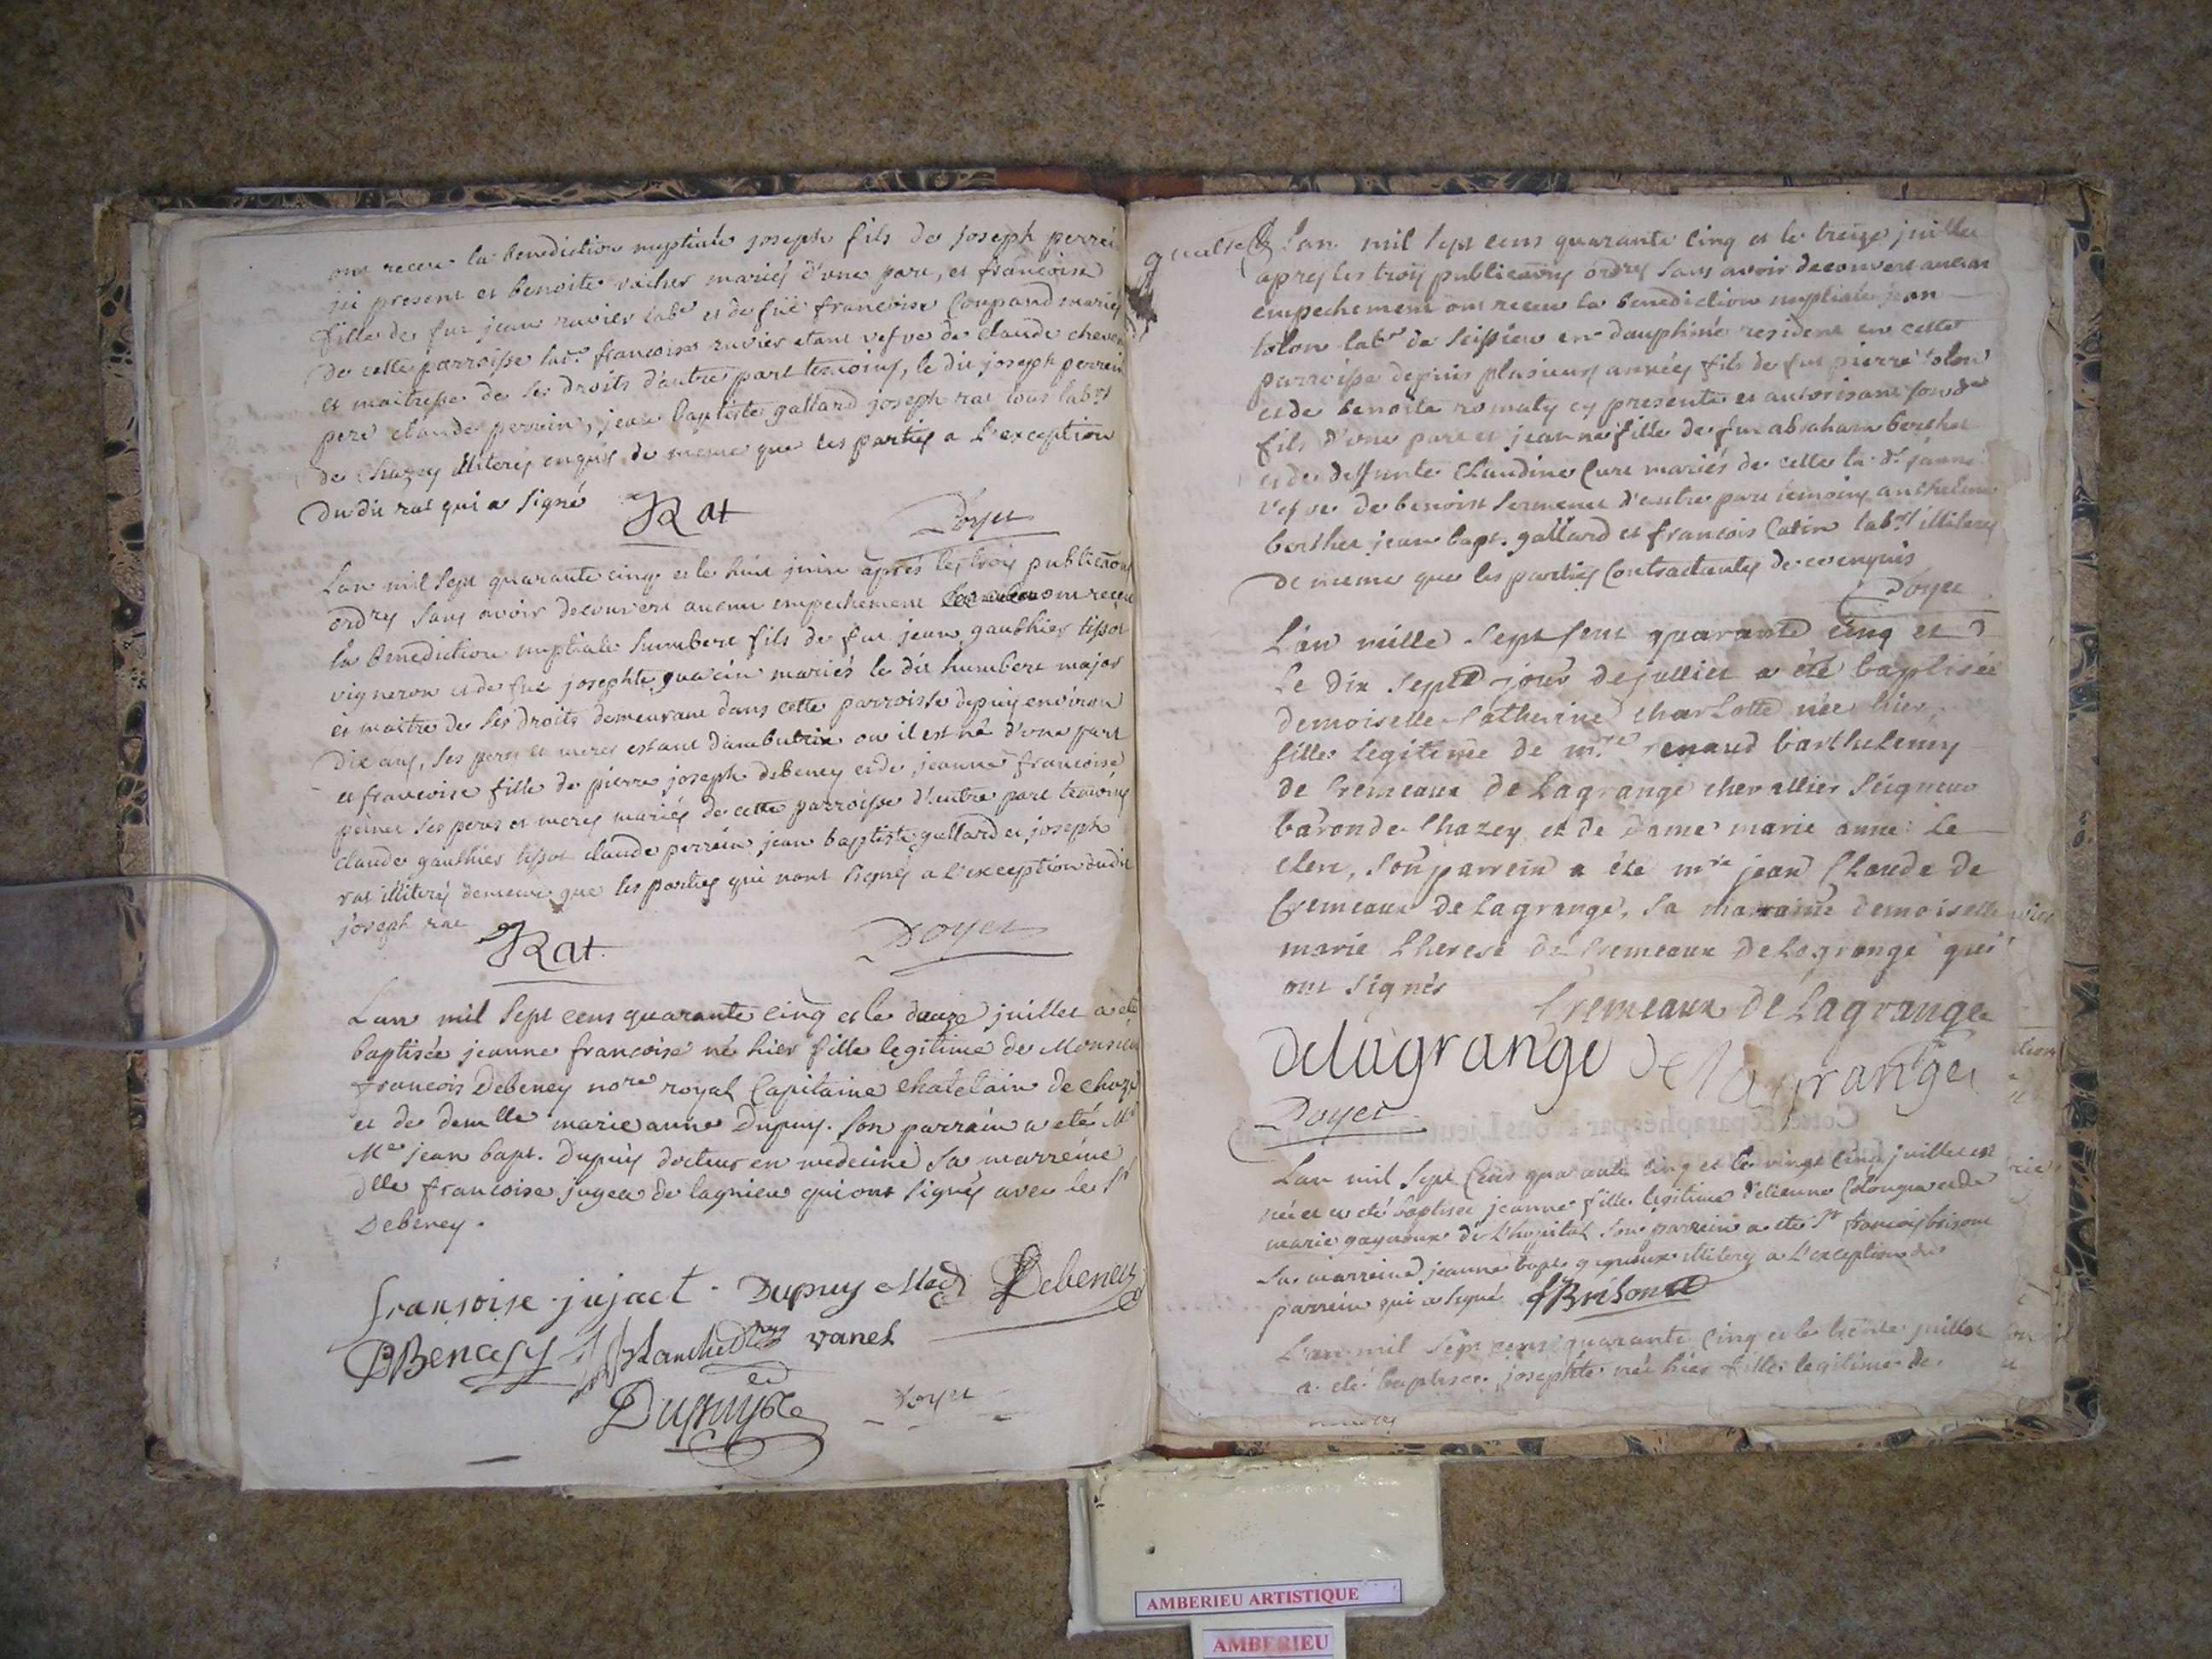 ont receu la benediction nuptiale joseph fils de joseph perrein
ici present et benoite vacher mariés d'une part, et francoise
fille de feu jean ruvier lab.r et de fuë francoise Coupand mariés
de cette parroisse lad.e francoise ruvier etant vefve de claude
et maitresse de ses droits d'autre part temoins, le dit joseph perrein
pere claude perrein, jean baptiste gallard joseph rat tous lab.rs
de Chazey illiterés enquis de meme que les parties a l'exception
du dit rat qui a signé Rat
Doyer
Lan mil sept quarante cinq et le huit juin après les trois publications
ordres sans avoir decouvert aucun empechement ont receu
la benediction nuptiale humbert fils de feu jean gauthier tissot
vigneron et de fuë josephte mariés le dit humbert major
et maitre de ses droits demeurant dans cette parroisse depuis environ
dix ans, ses peres et meres estant d'ambutrix ou il est né d'une part
et francoise fille de pierre joseph debeney et de jeanne francoise
ses peres et meres mariés de cette parroisse d'autre part temoins
claude gauthier tissot claude perrein jean baptiste gallard et joseph
rat illiterés de meme que les parties qui nont signés a l'exception dudit
joseph rat
Rat Doyer
Lan mil sept cens quarante cinq et le douze juillet a eté
baptisée jeanne francoise né hier fille legitime de Monsieur
francois Debeney no.re royal Capitaine chatelain de chazey
et de dem.lle marie anne Dupuy. son parrein a eté M.r
M.e jean bapt. Dupuy docteur en medecine sa marreine
d.lle francoise jujat de lagnieu qui ont signés avec le S.r
Debeney.
françoise jujact. Dupuy Med Debeney
vanel
Doyer
L'an mil sept cens quarante cinq et le treize juillet
apres les trois publications ordres sans avoir decouvert aucun
empechement ont receu la benediction nuptiale jean
tolon lab.r de Seissieu en dauphiné resident en cette
parroisse depuis plusieurs années fils de feu pierre tolon
et de benoite romaty cy presente et autorisant son d.
fils d'une part et jeanne fille de feu abraham berthet
et de deffunte Claudine Cure mariés de cette la d.e jeanne
vefve de benoist sermenet d'autre part temoins anthelme
berthet jean bapt. gallard et francois Catin lab.rs illiterés
de meme que les parties Contractantes de ce enquis
Doyer
L'an mille sept sent quarante cinq et
le dix sept jour de juillier a été baptisée
demoiselle Catherine charlotte née hier,
fille legitime de m.re renaud barthelemy
de Cremeaux de Lagrange chevallier Seigneur
baron de Chazey et de dame marie anne Le
clerc, son parrein a été m.re jean Claude de
Cremeaux de Lagrange, sa maraine demoiselle
marie therese de Cremeaux de Lagrange qui
ont signés
Cremeaux de Lagrange
delagrange de lagrange
Doyer
Lan mil sept cens quarante cinq et le vingt cinq juillet est
née et a eté baptisée jeanne fille legitime d'etienne Cologne et de
marie gayneux de l'hopital son parrein a eté S.r francois brison
sa marreine jeanne illiterés a l'exception du
parrein qui a signé fBrison
L'an mil sept cens quarante cinq et le trente juillet
a eté baptisée josephte née hier fille legitime de
AMBERIEU ARTISTIQUE
AMBERIEU